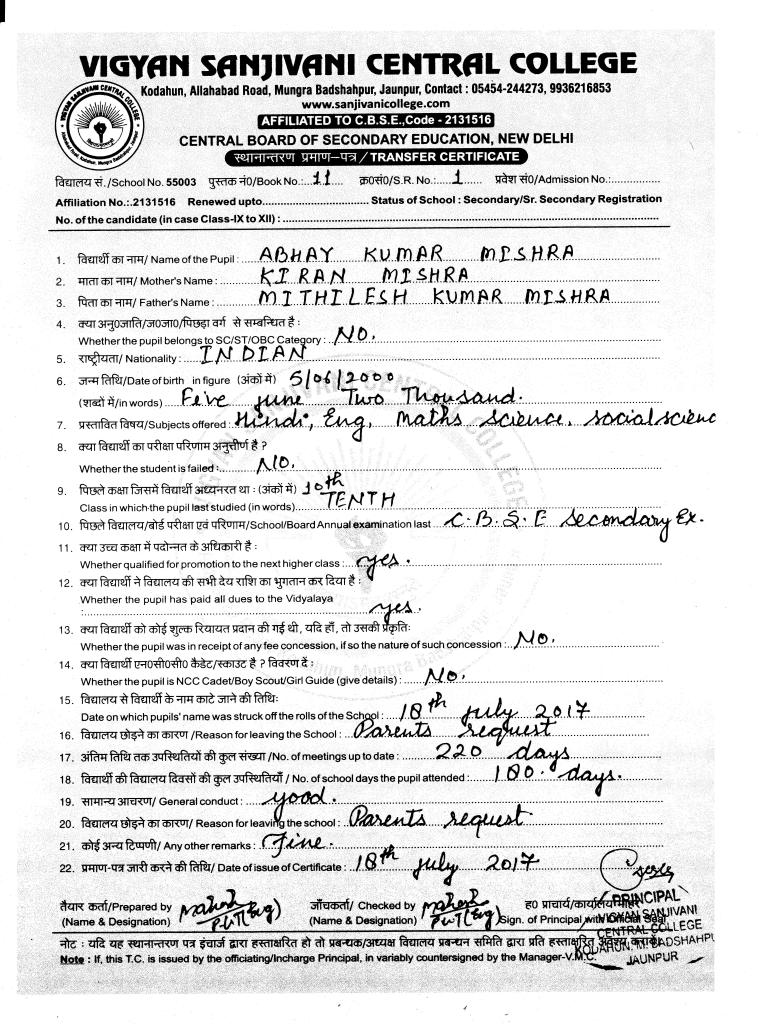 VIGYAN SANJIVANI CENTRAL COLLEGE
Kodahun, Allahabad Road, Mungra Badshahpur, Jaunpur, Contact : 05454-244273, 9936216853
www.sanjivanicollege.com
AFFILIATED TO C.B.S.E., Code - 2131516
CENTRAL BOARD OF SECONDARY EDUCATION, NEW DELHI
स्थानान्तरण प्रमाण-पत्र / TRANSFER CERTIFICATE
विद्यालय सं./School No. 55003 पुस्तक नं0/Book No.: 11 क्र0सं0/S.R. No.: 1 प्रवेश सं0/Admission No.:
Affiliation No.:.2131516 Renewed upto Status of School : Secondary/Sr. Secondary Registration
No. of the candidate (in case Class-IX to XII) :
1. विद्यार्थी का नाम/ Name of the Pupil : ABHAY KUMAR MISHRA
2. माता का नाम/ Mother's Name : KIRAN MISHRA
3. पिता का नाम/ Father's Name : MITHILESH KUMAR MISHRA
4. क्या अनु0जाति/ज0जा0/पिछड़ा वर्ग से सम्बन्धित है :
Whether the pupil belongs to SC/ST/OBC Category : NO.
5. राष्ट्रीयता/ Nationality : INDIAN
6. जन्म तिथि/Date of birth in figure (अंकों में) 5/06/2000
(शब्दों में/in words) Feive june Two Thousand.
7. प्रस्तावित विषय/Subjects offered : Hindi, Eng, Maths science, social scienc
8. क्या विद्यार्थी का परीक्षा परिणाम अनुत्तीर्ण है ?
Whether the student is failed : NO.
9. पिछले कक्षा जिसमें विद्यार्थी अध्यनरत था : (अंकों में) 10th
Class in which the pupil last studied (in words) TENTH
10. पिछले विद्यालय/बोर्ड परीक्षा एवं परिणाम/School/Board Annual examination last C.B.S.E Secondary Ex.
11. क्या उच्च कक्षा में पदोन्नत के अधिकारी है :
Whether qualified for promotion to the next higher class : yes.
12. क्या विद्यार्थी ने विद्यालय की सभी देय राशि का भुगतान कर दिया है :
Whether the pupil has paid all dues to the Vidyalaya
: yes.
13. क्या विद्यार्थी को कोई शुल्क रियायत प्रदान की गई थी, यदि हाँ, तो उसकी प्रकृतिः
Whether the pupil was in receipt of any fee concession, if so the nature of such concession : No.
14. क्या विद्यार्थी एन0सी0सी0 कैडेट/स्काउट है ? विवरण दें :
Whether the pupil is NCC Cadet/Boy Scout/Girl Guide (give details) : No.
15. विद्यालय से विद्यार्थी के नाम काटे जाने की तिथिः
Date on which pupils' name was struck off the rolls of the School : 18th july 2017
16. विद्यालय छोड़ने का कारण /Reason for leaving the School : Parents request
17. अंतिम तिथि तक उपस्थितियों की कुल संख्या /No. of meetings up to date : 220 days
18. विद्यार्थी की विद्यालय दिवसों की कुल उपस्थितियाँ / No. of school days the pupil attended : 180. days.
19. सामान्य आचरण/ General conduct : good.
20. विद्यालय छोड़ने का कारण/ Reason for leaving the school : Parents request
21. कोई अन्य टिप्पणी/ Any other remarks : Fine.
22. प्रमाण-पत्र जारी करने की तिथि/ Date of issue of Certificate : 18th july 2017
तैयार कर्ता/Prepared by Mahesh जाँचकर्ता/ Checked by Mahesh ह0 प्राचार्य/कार्यालय मोहर
(Name & Designation) (Name & Designation) Sign. of Principal with Official Seal
PRINCIPAL
VIGYAN SANJIVANI
CENTRAL COLLEGE
KODAHUN, M. BADSHAHPU
JAUNPUR
नोट : यदि यह स्थानान्तरण पत्र इंचार्ज द्वारा हस्ताक्षरित हो तो प्रबन्धक/अध्यक्ष विद्यालय प्रबन्धन समिति द्वारा प्रति हस्ताक्षरित
Note : If, this T.C. is issued by the officiating/Incharge Principal, in variably countersigned by the Manager-V.M.C.